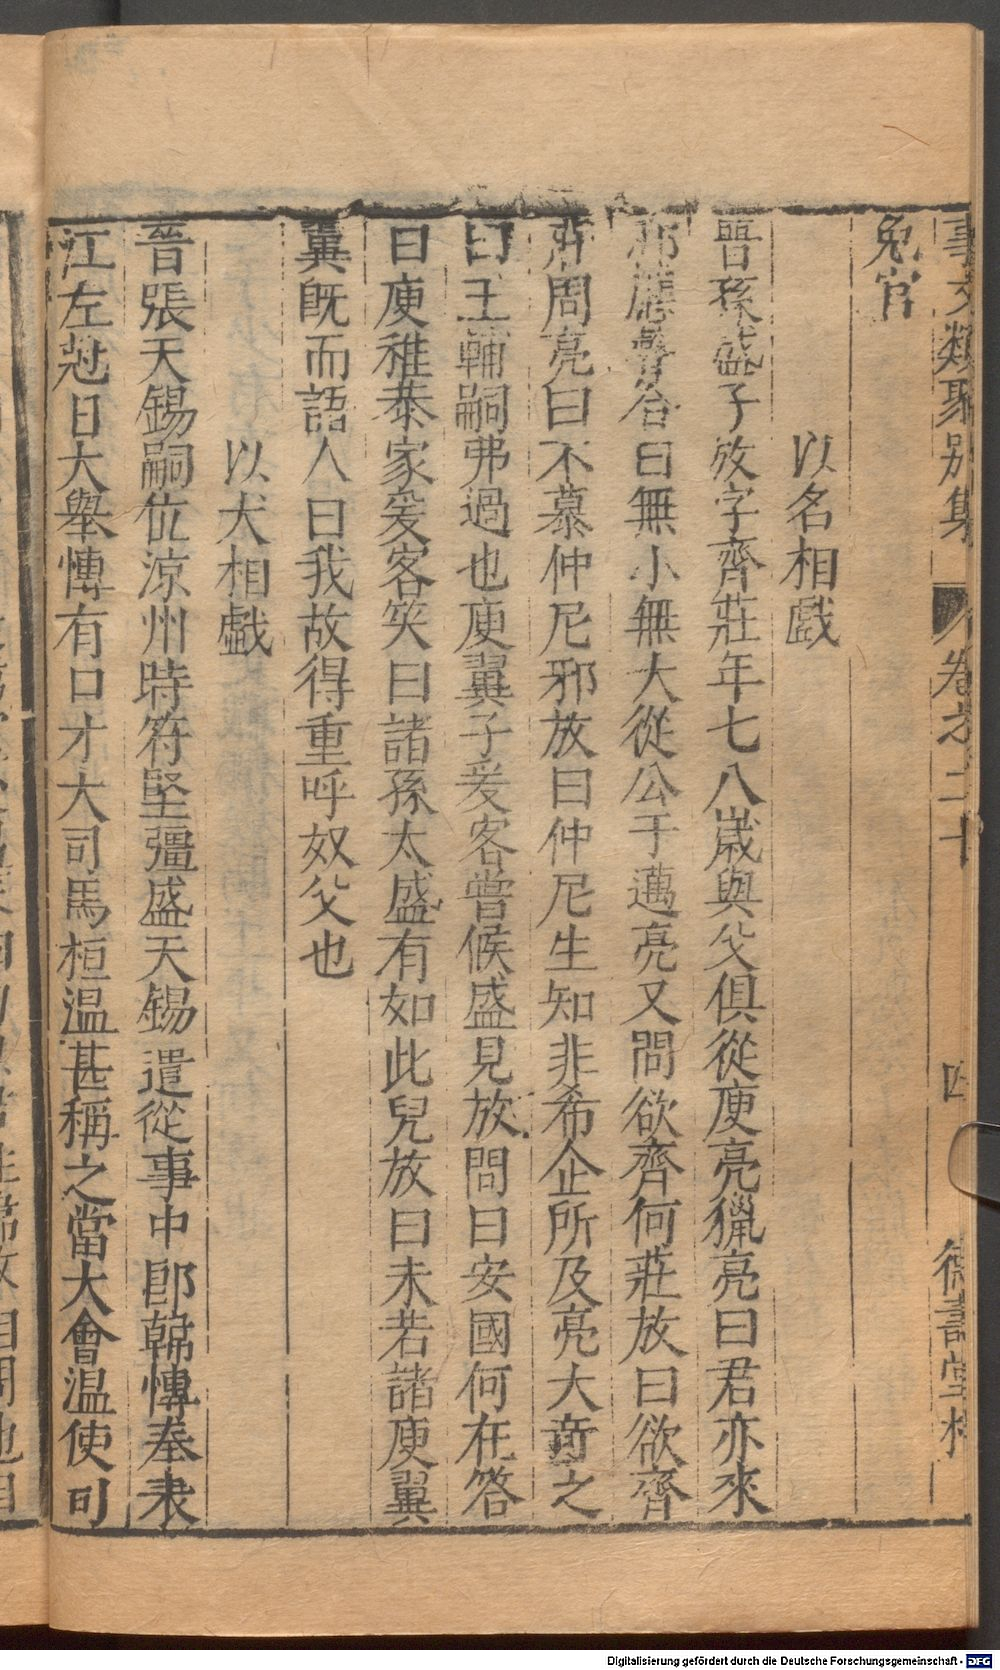 事文類聚別集 卷之二十 四 德壽堂梓
免官
以名相戲
晋孫盛子放字齊莊年七八歲與父俱從庾亮獵亮曰君亦來
邪應聲答曰無小無大從公于邁亮又問欲齊何莊放曰欲齊
莊周亮曰不慕仲尼邪放曰仲尼生知非希企所及亮大奇之
曰王輔嗣弗過也庾翼子爰客嘗候盛見放問曰安國何在答
曰庾稚恭家爰客笑曰諸孫太盛有如此兒放曰未若諸庾翼
翼既而語人曰我故得重呼奴父也
以犬相戲
晋張天錫嗣位涼州時符堅彊盛天錫遣從事中郎韓慱奉表
江左尅日大舉慱有口才大司馬桓溫甚稱之當大會溫使司